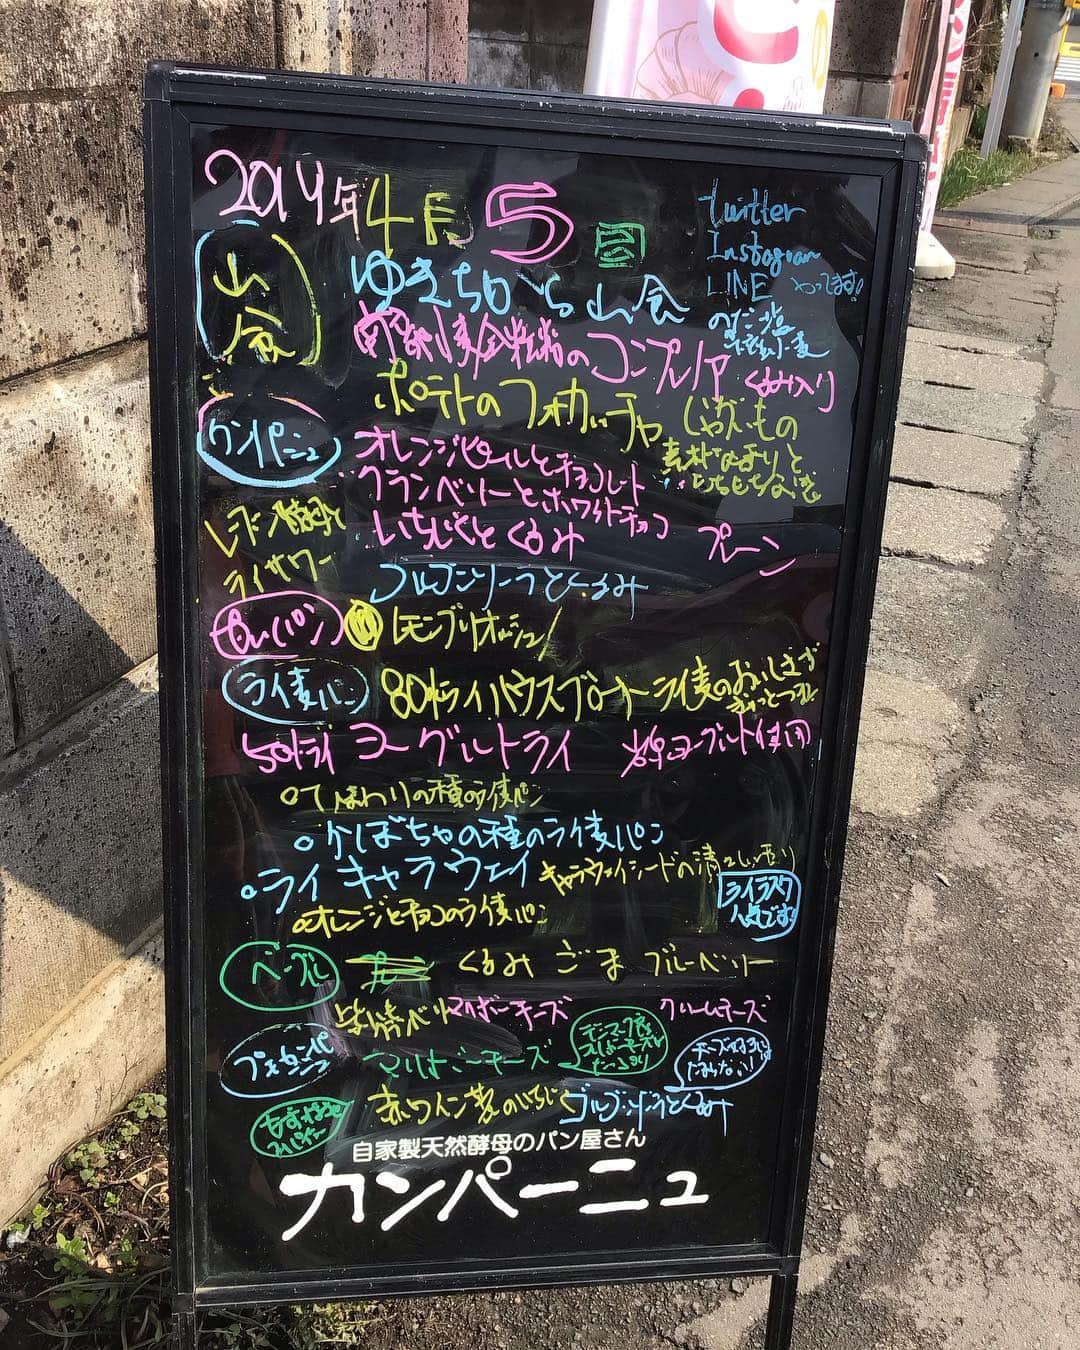 2019年4月5日
twitter
Instagram
LINE やってます!
山食
ゆきちから山食
小麦全粒粉のコンプレノア くるみ入り
ポテトのフォカッチャ じゃがいもの
素朴な香りと
もちもちな
カンパーニュ
オレンジピールとチョコレート
クランベリーとホワイトチョコ
いちじくとくるみ プレーン
レーズン酵母と
ライサワー
ゴルゴンゾーラとくるみ
甘いパン
レモンブリオッシュ
ライ麦パン
80%ライハウスブロート ライ麦のおいしさが
ぎゅっとつまった
50%ライ ヨーグルトライ ヨーグルト使用
ひまわりの種のライ麦パン
かぼちゃの種のライ麦パン
ライキャラウェイ キャラウェイシードの清々しい香り
ライラスク
人気です!
オレンジとチョコのライ麦パン
ベーグル
くるみ ごま ブルーベリー
マリボーチーズ クリームチーズ
プチカンパーニュ
マリボーチーズ
デンマーク産
マリボーチーズを
たっぷり
チーズ好きには
たまらない!
赤ワイン煮のいちじく ゴルゴンゾーラとくるみ
自家製天然酵母のパン屋さん
カンパーニュ